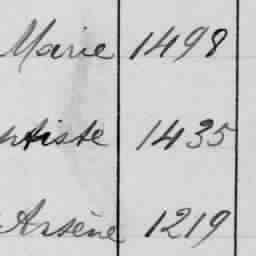 Marie 1498
ptiste 1435
Arsène 1219